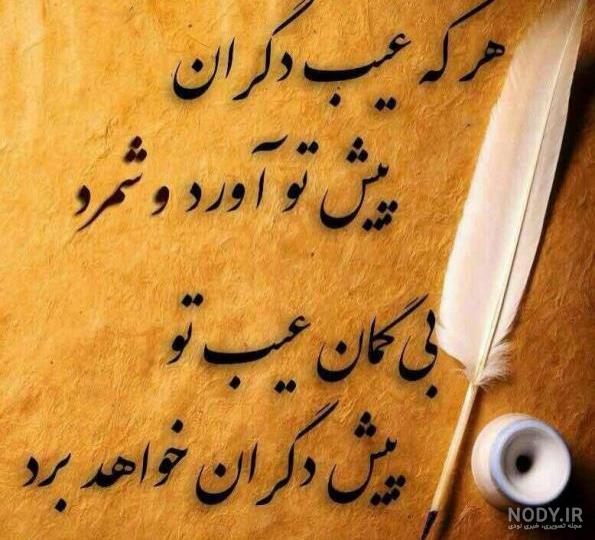 هر که عیب دگران
پیش تو آورد و شمرد
بی گمان عیب تو
پیش دگران خواهد برد
NODY.IR
مجله تصویری، خبری نودی